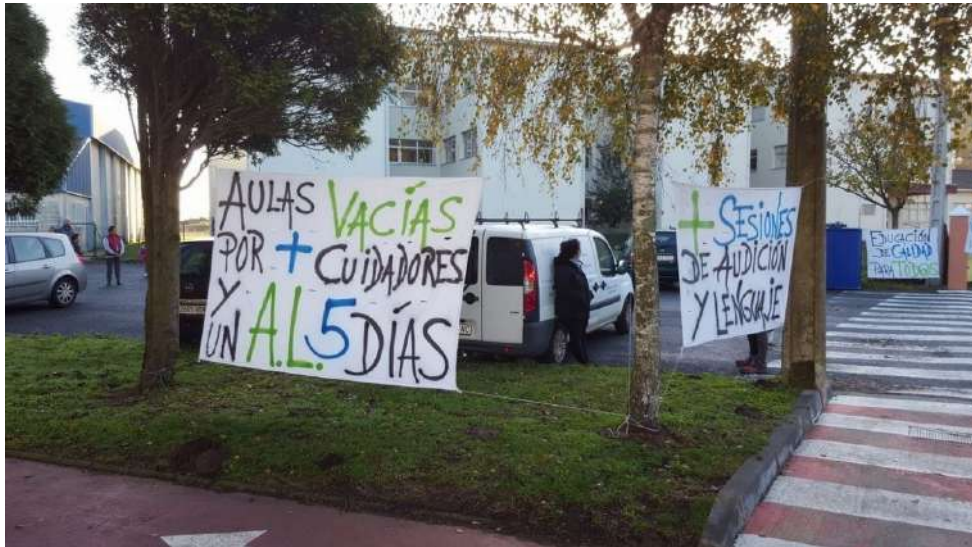 AULAS VACÍAS
POR + CUIDADORES
Y
UN A.L. 5 DÍAS
+ SESIONES
DE AUDICIÓN
Y LENGUAJE
EDUCACIÓN
DE CALIDAD
PARA TODOS